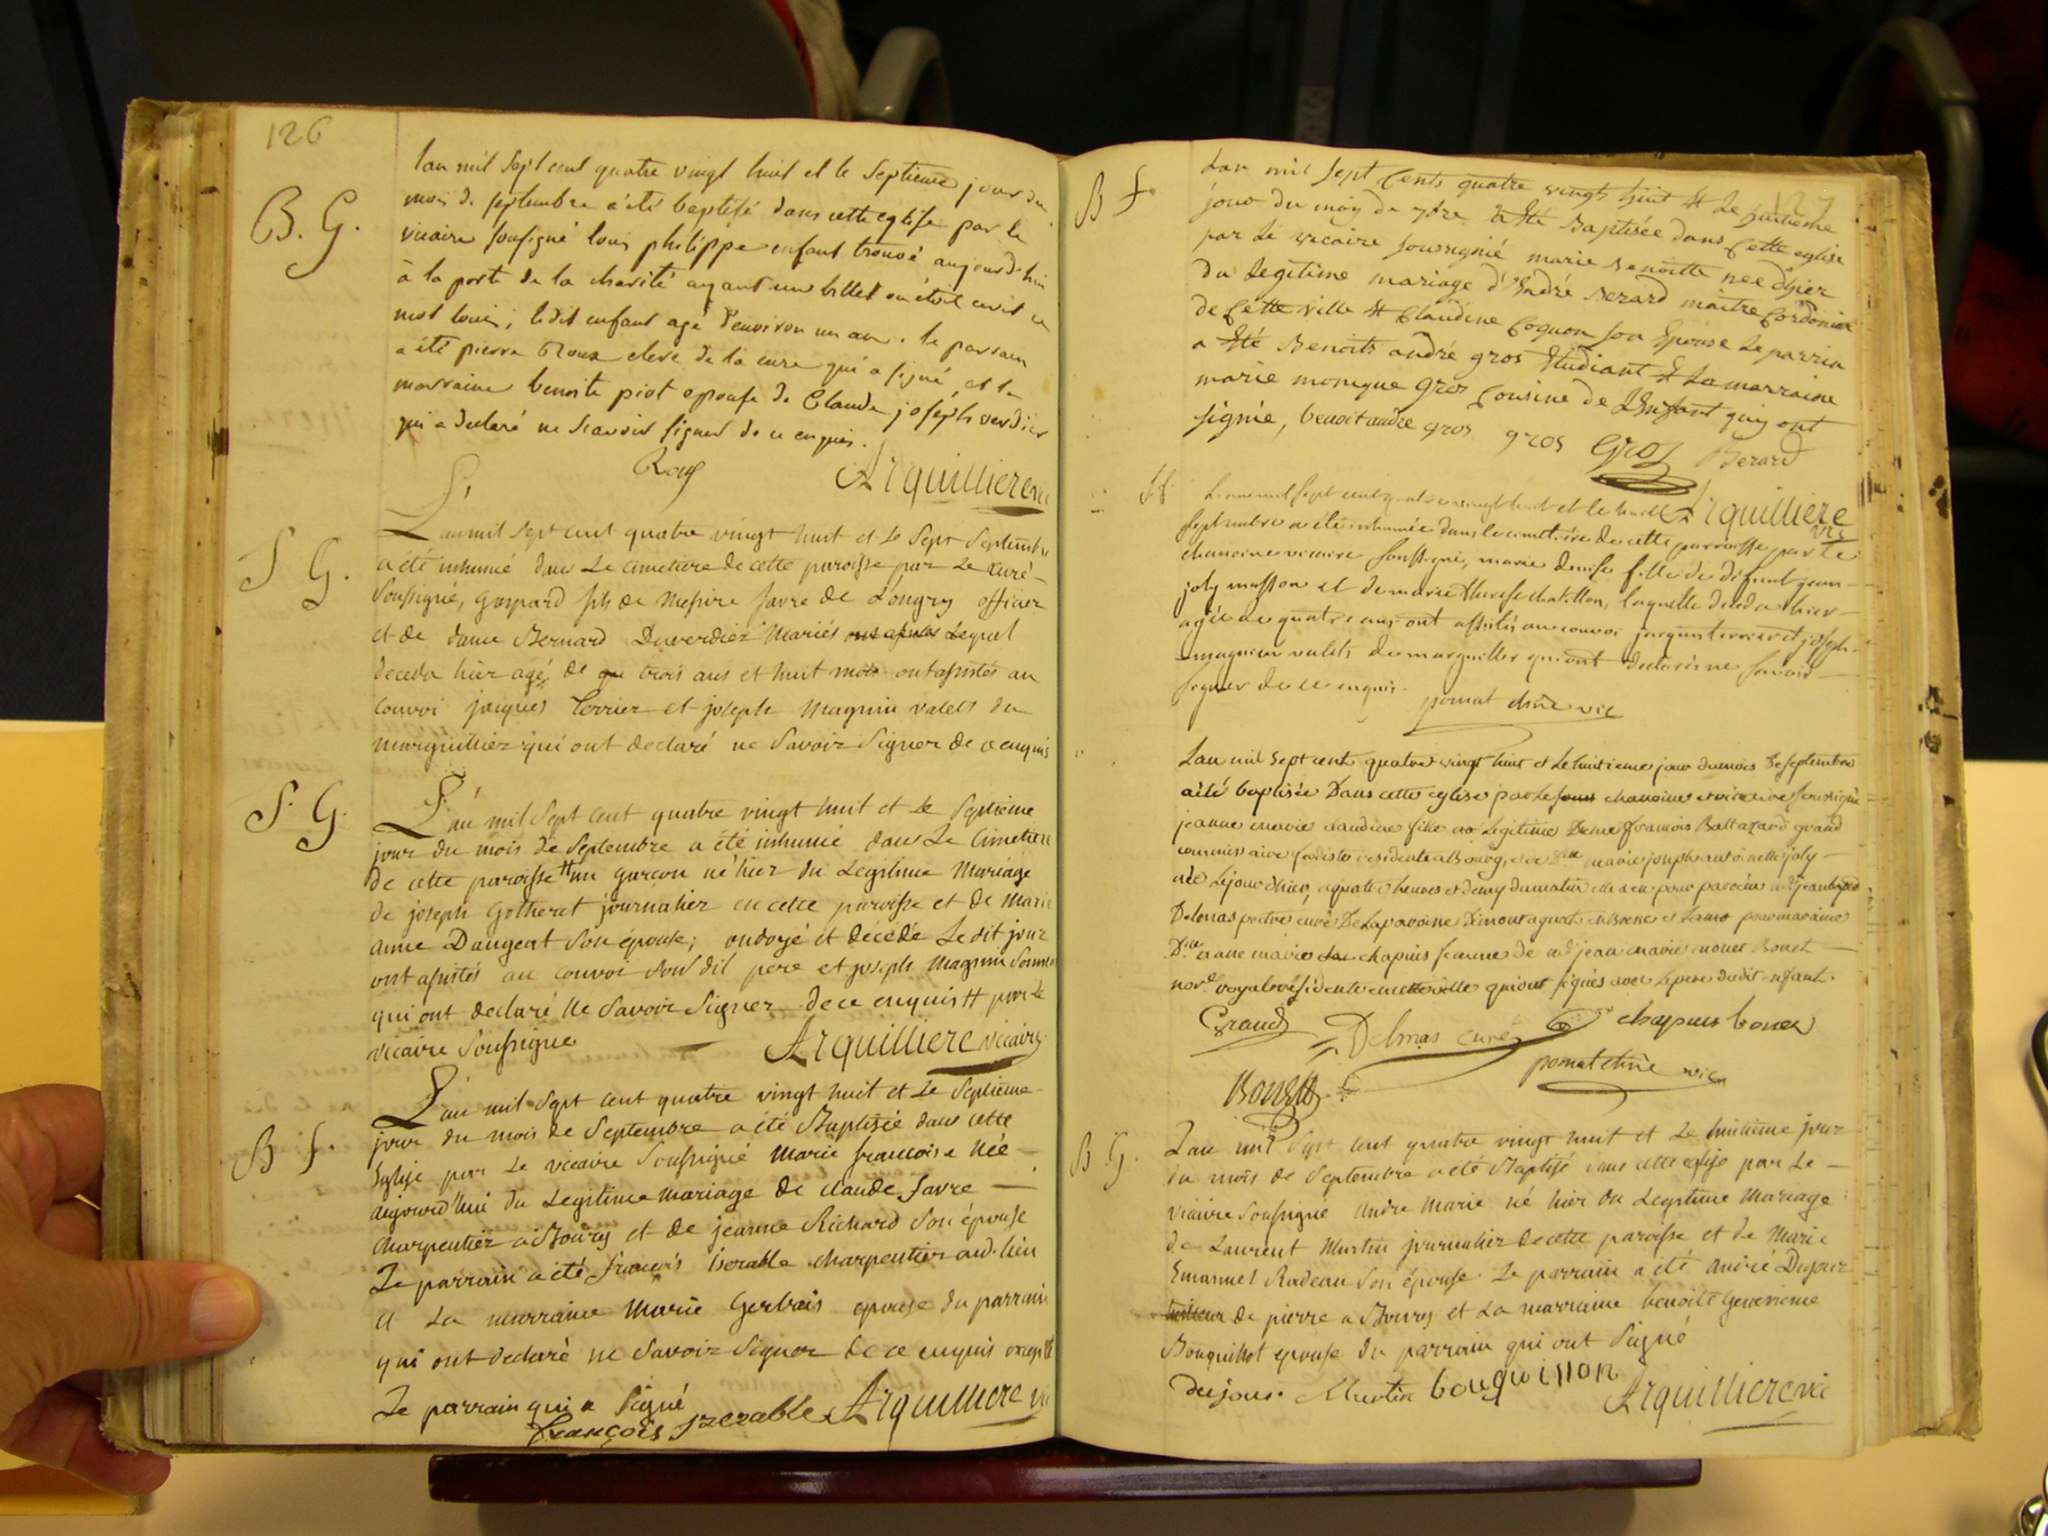 126
B. G.
lan mil sept cent quatre vingt huit et le septieme jour du
mois de septembre a été baptisé dans cette eglise par le
vicaire soussigné louis philippe enfant trouvé aujourd'hui
à la porte de la charité ayant un billet où étoit ecrit ce
mot louis; ledit enfant agé d'environ un an. le parrain
a été pierre Roux clerc de la cure qui a signé et la
marraine benoite piot epouse de Claude joseph verdier
qui a declaré ne scavoir signer de ce enquis.
Roux Arquilliere vic
S G.
L'an mil sept cent quatre vingt huit et le sept septembre
a été inhumé dans le cimetiere de cette paroisse par le curé
soussigné, gaspard fils de messire favre de Longry officier
et de dame Bernard Duverdier mariés lequel
deceda hier agé de trois ans et huit mois ont assistés au
convoi jacques Terrier et joseph magnin valets du
marguillier qui ont declaré ne savoir signer de ce enquis
S. G.
L'an mil sept cent quatre vingt huit et le septieme
jour du mois de septembre a été inhumé dans le cimetiere
de cette paroisse # un garcon né hier du legitime mariage
de joseph Gotheret journalier en cette paroisse et de marie
anne Daugert son épouse; ondoyé et decédé le dit jour
ont assistés au convoi sondit pere et joseph magnin sonneur
qui ont declaré ne savoir signer de ce enquis # par le
vicaire soussigné Arquilliere vicaire
B f.
L'an mil sept cent quatre vingt huit et le septieme
jour du mois de septembre a été Baptisée dans cette
Eglise par le vicaire soussigné marie francoise née
aujourd'hui du legitime mariage de claude favre
charpentier a Bourg et de jeanne Richard son épouse
Le parrain a été françois iserable charpentier aud. lieu
et La marraine Marie Gerbais epouse du parrain
qui ont declaré ne savoir signer de ce enquis excepté
Le parrain qui a signé
françois jzerable Arquilliere vic
127
B f
Lan mil sept Cents quatre vingts huit et Le huitieme
jour du moy de 7bre a Eté Baptisée dans Cette eglise
par Le vicaire soussignié marie Benoitte née d'hier
du Legitime mariage d'André Berard maitre Cordonier
de Cette ville et Claudine Coquon son Epouse Le parrin
a Eté Benoits andré gros Etudiant et La marraine
marie monique gros Cousine de L'Enfant qui ont
signié, benoit andré gros gros Gros Berard
Arquilliere vic
S f.
L'an mil sept cent quatre vingt huit et le huit
septembre a été inhumée dans le cimetière de cette parroisse par le
chanoine vicaire soussigné, marie denise fille de défunt jean
joly masson et de marie therese chatillon, laquelle deceda hier
agée de quatre ans ont assistés au convoi jacques terrier et joseph
magnin valets du marguillier qui ont declarés ne savoir
signer de ce enquis.
pomat chne vic
Lan mil sept cent quatre vingt huit et le huitieme jour du mois de septembre
a été baptisée Dans cette eglise par le chanoine et vicaire soussigné
jeanne marie claudine fille legitime De me francois Baltazard grand
commissaire feodiste residente a Bourg, et de dlle marie joseph antoinette joly
née Lejour d'hier, a quatre heures et demy du matin elle a eu pour parrein
Delmas pretre curé De la paroisse Dimont en Bresse et Lamo pour maraine
Dlle anne marie chapuis femme de jean marie Bonet
nore royal residente en cette ville qui ont signés avec le pere dudit enfant.
Grand Delmas curé chapuis bonet
Bonet pomat chne vic
B G.
L'an mil sept cent quatre vingt huit et Le huitième jour
du mois de Septembre a été Baptisé dans cette eglise par Le
vicaire soussigné andre marie né hier du Legitime mariage
de Laurent Martin journalier de cette paroisse et de Marie
Emanuel Radeau son épouse. Le parrain a été andré Dujour
tailleur de pierre a Bourg et La marraine benoite Genevieve
Bouquillot epouse du parrain qui ont signé
dujour. Martin bouquillon Arquilliere vic